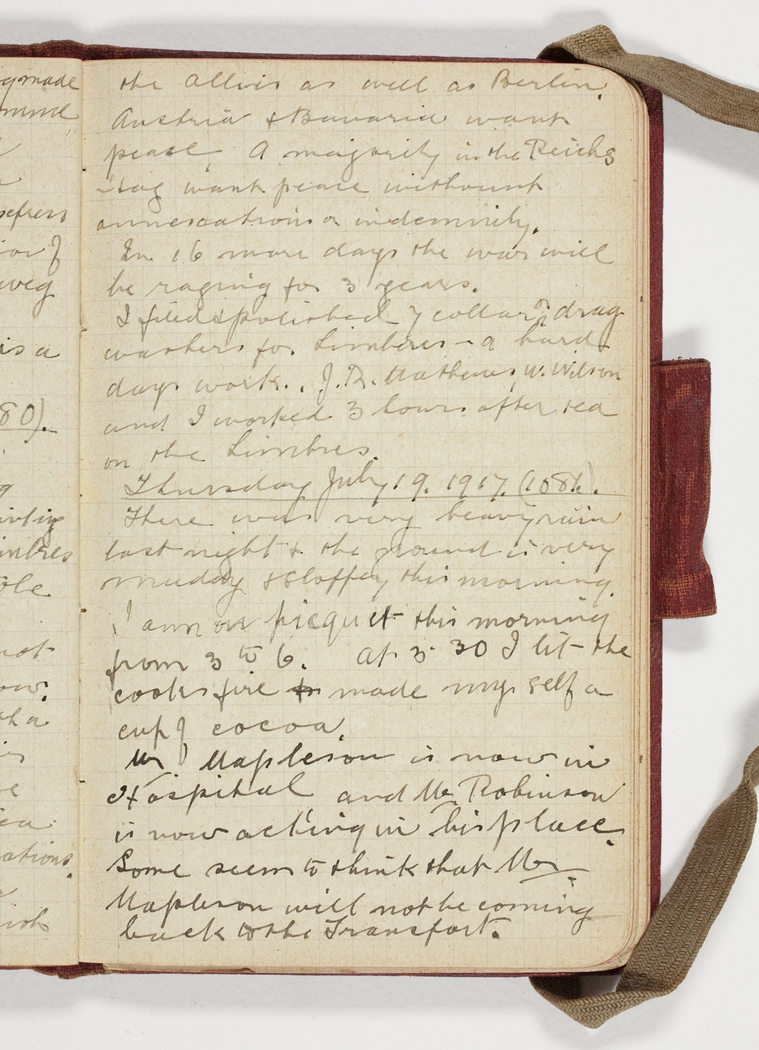 gmade
mind
prefers
ion of
weg
is a
80).
imbres
ole
not
ow.
tha
ations.
the Allies as well as Berlin.
Austria & Bavaria want
peace. A majority in the Reichs
-tag want peace without
annexations or indemnity.
In 16 more days the war will
be raging for 3 years.
I filed & polished 7 collar & drag
washers for Limbres - a hard
days work. J.R. Mathews, W. Wilson
and I worked 3 hours after tea
on the Limbres.
Thursday July 19. 1917. (1081).
There was very heavy rain
last night & the ground is very
muddy & sloppy this morning.
I am on picquet this morning
from 3 to 6. At 3.30 I lit the
cooks fire & made myself a
cup of cocoa.
Mr Mapleson is now in
Hospital and Mr Robinson
is now acting in his place.
Some seem to think that Mr
Mapleson will not be coming
back to the Transport.